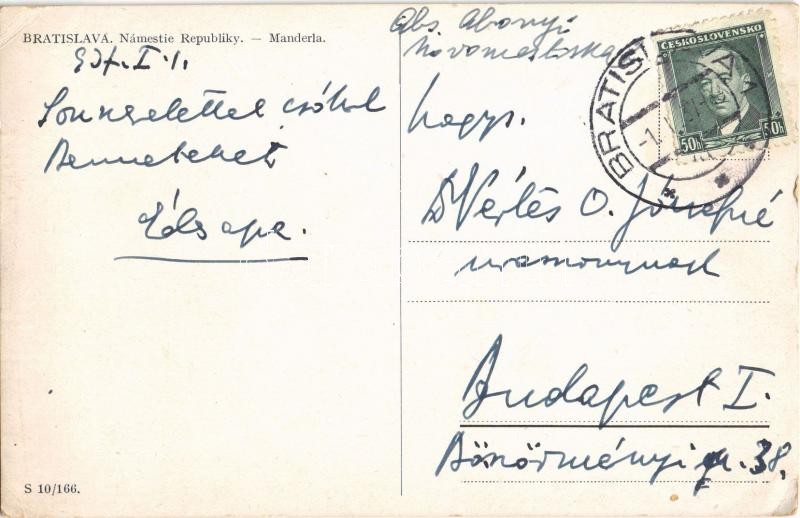 BRATISLAVA. Námestie Republiky. — Manderla.
937. I. 1.
Sok szeretettel csókol
Benneteket
Édsapa.
S 10/166.
Abs Abonyi
Novomestska
ČESKOSLOVENSKO
50h 50h
BRATISLAVA 1
Nagys.
Dr Vértes O. Józsefné
urasszonynak
Budapest I.
Böszörményi út. 38.